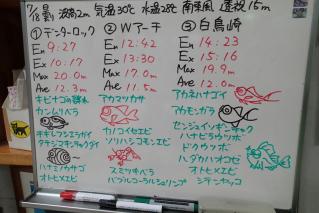 7/18 波高2m 気温30℃ 水温28℃ 南東風 透視15m
①デンターロック
En 9:27
Ex 10:17
Max 20.0m
Ave 12.3m
キビナゴの群れ
カンムリベラ
キイレフシエラガイ
タテジマキンチャクダイ
ハナミノカサゴ
オトヒメエビ
②Wアーチ
En 12:42
Ex 13:30
Max 17.0m
Ave 11.5m
アカマツカサ
カノコイセエビ
ソリハシコモンエビ
スミツキベラ
バブルコーラルシュリンプ
③白鳥崎
En 14:23
Ex 15:16
Max 19.9m
Ave 12.0m
アカネハナゴイ
アカモンガラ
センジュイソギンチャク
ハナビラウツボ
ドクウツボ
ハダカハオコゼ
オトヒメエビ
シテンヤッコ